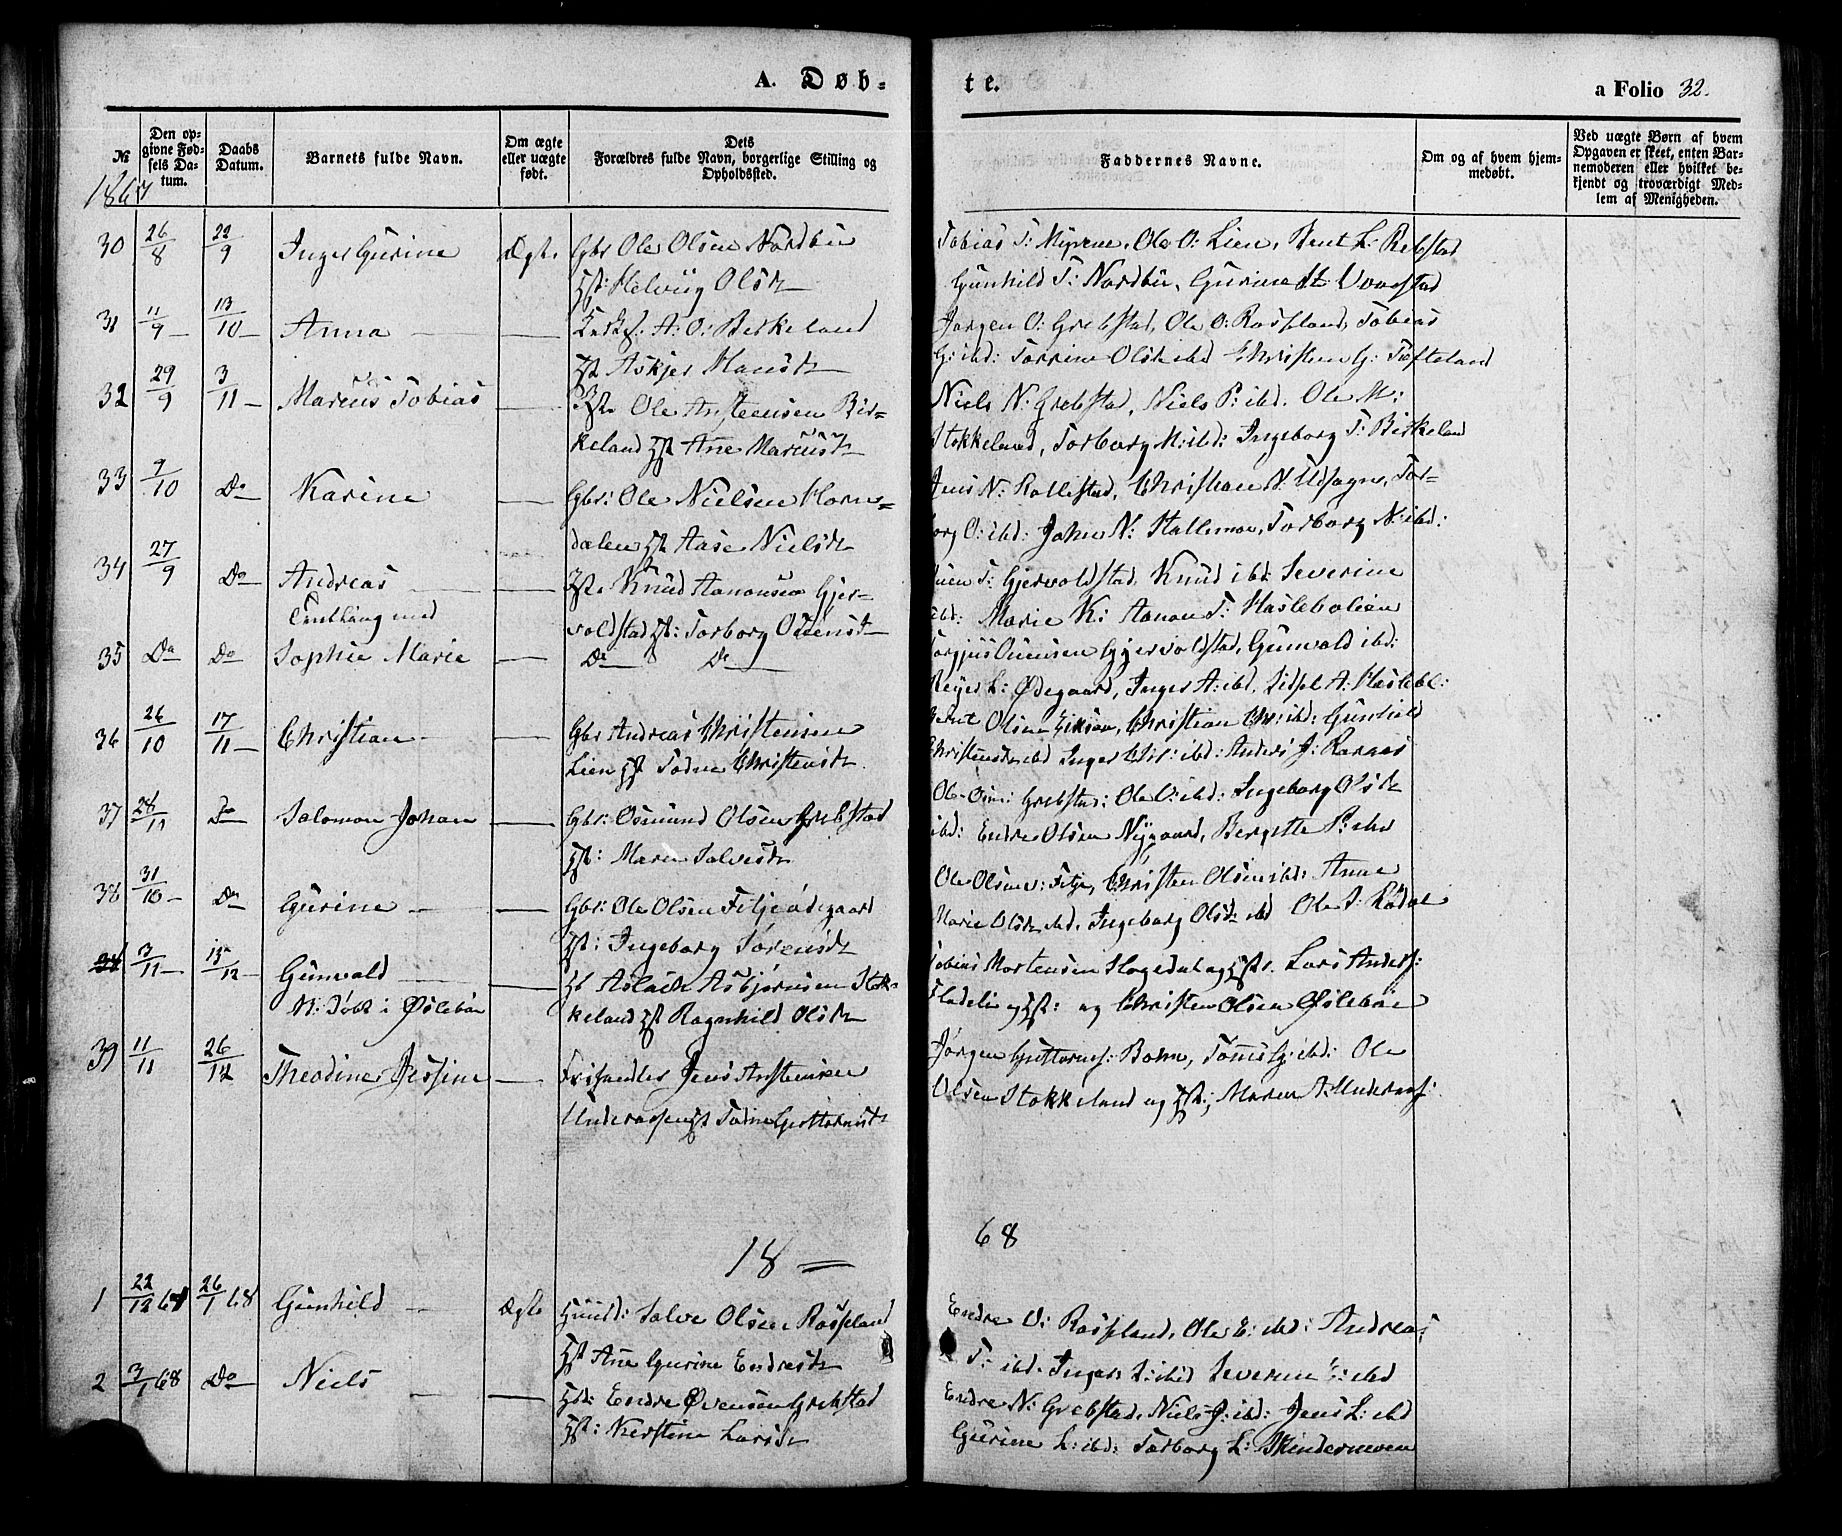 A. Døb-
te.
a Folio 32.
№
Den op-
givne Fød-
sels Da-
tum.
Daabs
Datum.
Barnets fulde Navn.
Om ægte
eller uægte
født.
Dets
Forældres fulde Navn, borgerlige Stilling og
Opholdssted.
Faddernes Navne.
Om og af hvem hjem-
medøbt.
Ved uægte Børn af hvem
Opgaven er skeet, enten Bar-
nemoderen eller hvilket be-
kjendt og troværdigt Med-
lem af Menigheden.
1867
30 26/8 22/9 Inger Gurine Ægte Gbr Ole Olsen Nordbu
Hst: Helvig Olsdt
Tobias T: Ole O: Lien, Bent L:
Gunhild T: Nordbu, Gurine
31 11/9 13/10 Anna A: O: Birkeland
Hst Askjer Hansdt
Jørgen O: Grebstad, Ole O: Rosseland, Tobias
G: ibd: Torrine Olsdt ibd Christen G: Tofteland
32 29/9 3/11 Marcus Tobias Ole Arsteensen Bir-
keland Hst Ane Marcusdt
Niels N: Grebstad, Niels P: ibd. Ole M:
Stokkeland, Torborg M: ibd: Ingeborg T: Birkeland
33 9/10 Do Karine Gbr: Ole Nielsen Horn-
dalen Hst Aase Nielsdt
Jens N: Rollestad, Christian N: Udsogn, Tor-
borg O: ibd: Johan N: Stallemoe, Torborg N: ibd:
34 27/9 Do Andreas Knud Aanonsen Gjer-
Tvilling med
voldstad Hst: Torborg Osuensdt
T: Gjervoldstad, Knud ibd: Severine
ibd: Marie K: Aanon T: Haslebalien
35 Do Do Sophie Marie Do Do
Torgjus Osuensen Gjervoldstad, Gunvald ibd:
Reyer L: Ødegaard, Inger A: ibd, Sidsel A: Haslebl:
36 26/10 17/11 Christian Gbr Andreas Christensen
Lien Hst Todne Christensdt.
Bernt Olsen Eiksaa, Christian Chr: ibd: Gunhild
Christensdt ibd Inger Chr: ibd: Anders J:
37 28/10 Do Salomon Johan Gbr: Osmund Olsen Grebstad
Hst: Maren Salvesdt
Ole Osm: Grebstad: Ole O: ibd: Ingeborg Olsdt
ibd: Endre Olsen Nygaard, Bergette P: ibd
38 31/10 Do Gurine Gbr: Ole Olsen Fitje ødegaard
Hst: Ingeborg Sørensdt
Ole Olsen: Fitje, Christen Olsen ibd: Anne
Marie Olsdt ibd, Ingeborg Olsdt ibd Ole A:
3/11 15/12 Gunvald Aslack Asbjørnsen Stok-
N: Døbt i Øslebø
keland Hst Ragnhild Olsdt
Tobias Mortensen og Hst. Lars Anders:
og Hst: og Christen Olsen Øslebøe
39 11/11 26/12 Theodine Jessine Jens Arsteinsen
Underaasen Hst Todne Guttormsdt
Jørgen Guttorms: Bohn, Tønnes G: ibd: Ole
Olsen Stokkeland og Hst:, Maren A: Underaas:
18 — 68
1 22/12 67 26/1 68 Gunhild Ægte Salve Olsen Rosseland
Hst Ane Gurine Endresdt
Endre O: Rosseland, Ole E: ibd: Andreas
T: ibd. Inger L: ibid Severine E: ibd
2 3/1 68 Do Niels Endre Øvensen Grebstad
Hst: Kerstine Larsdt
Endre N: Grebstad, Niels J: ibd: Jens L: ibd
Gurine L: ibd: Torborg L: